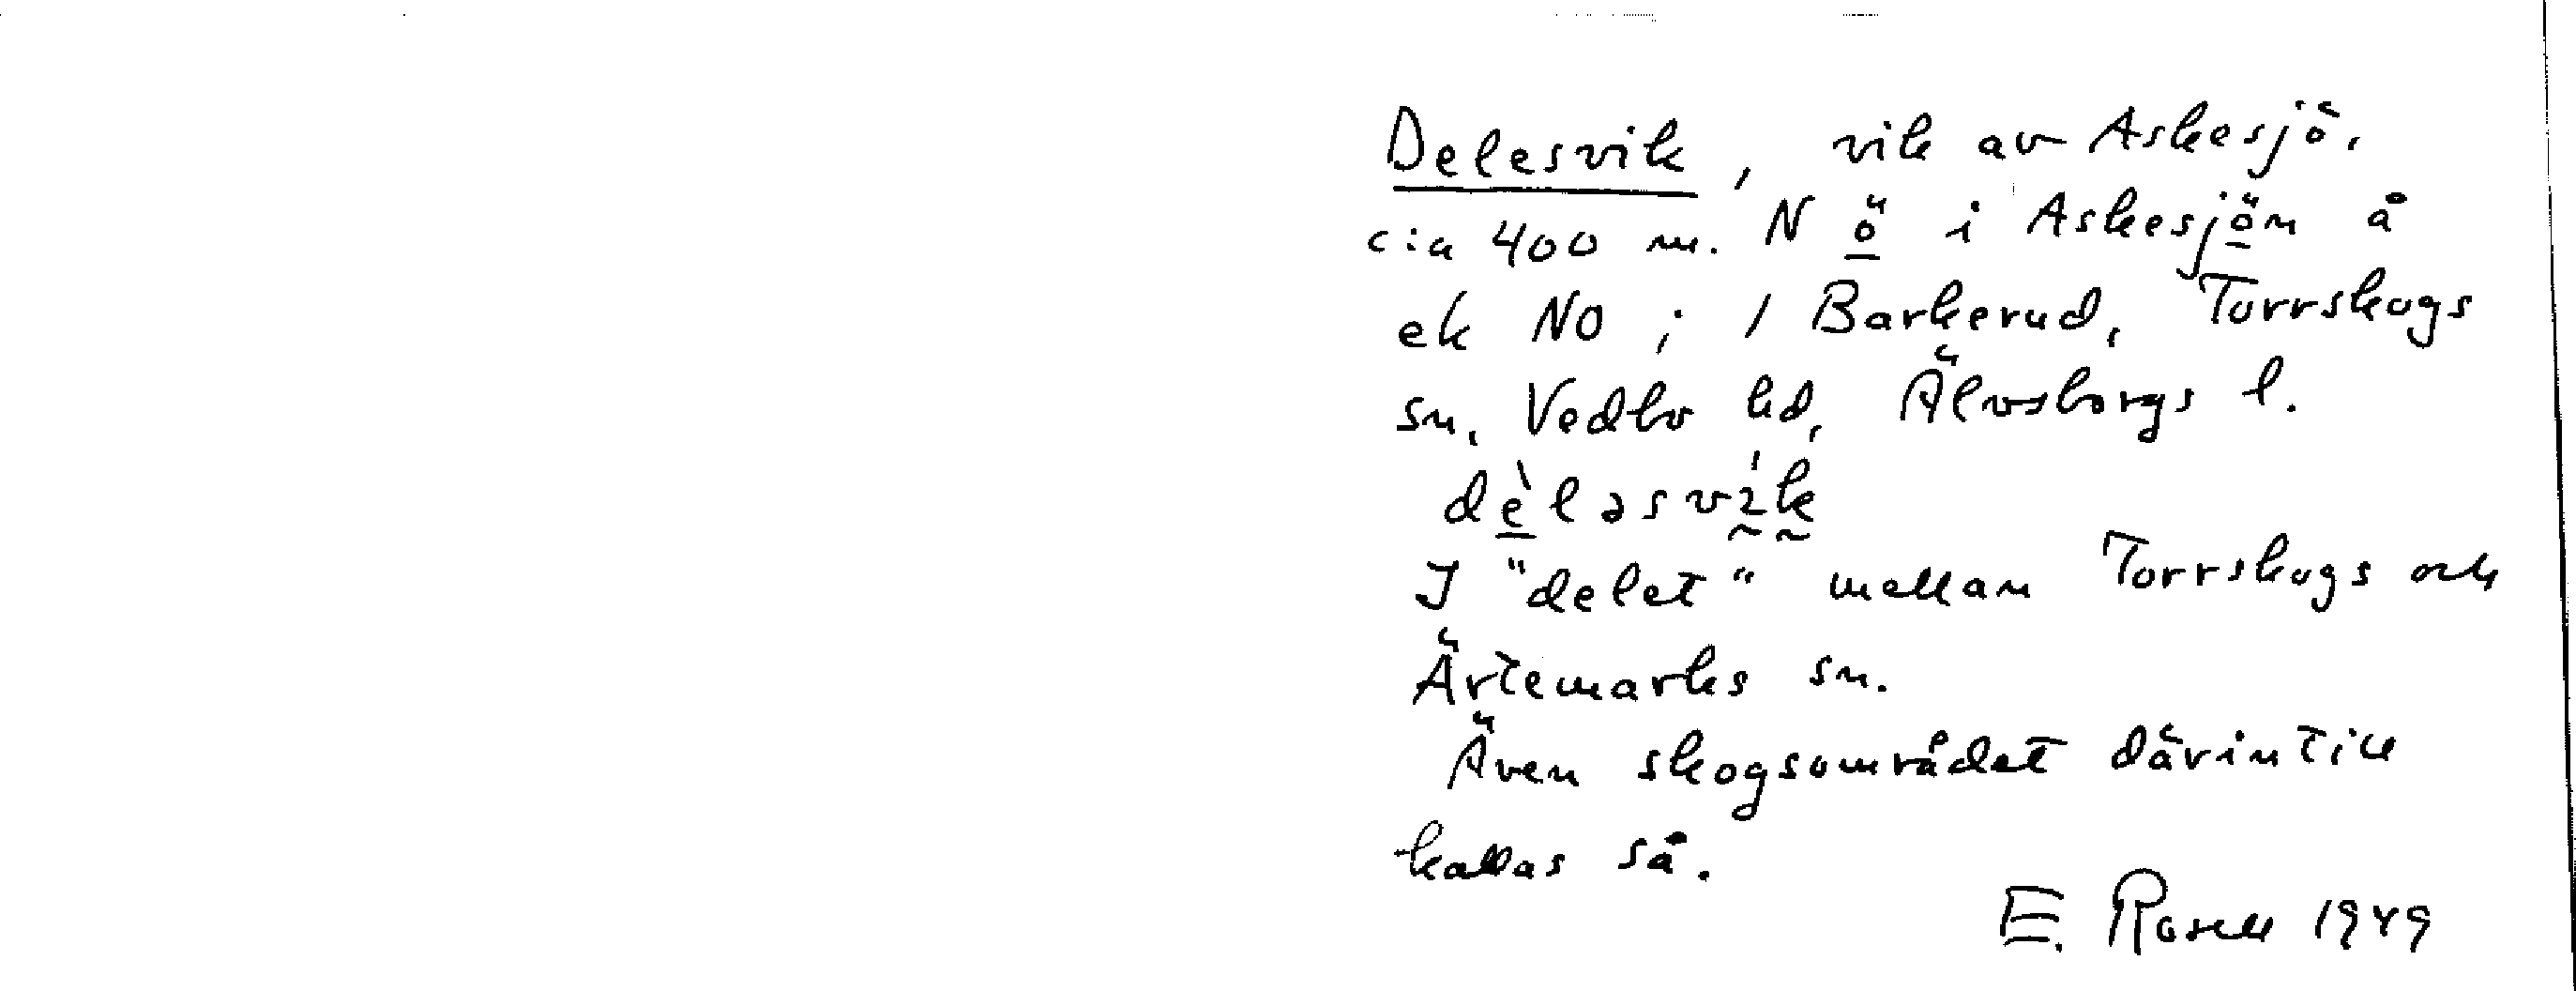 Delesvik, vik av Askesjö,
c:a 400 m. N ö i Askesjön å
ek NO ; / Barkerud, Torrskogs
sn, Vedbo hd, Älvsborgs l.
dèləsvi̇́k
I "delet" mellan Torrskogs och
Ärtemarks sn.
Även skogsområdet därintill
kallas så.
E. Rosell 1949